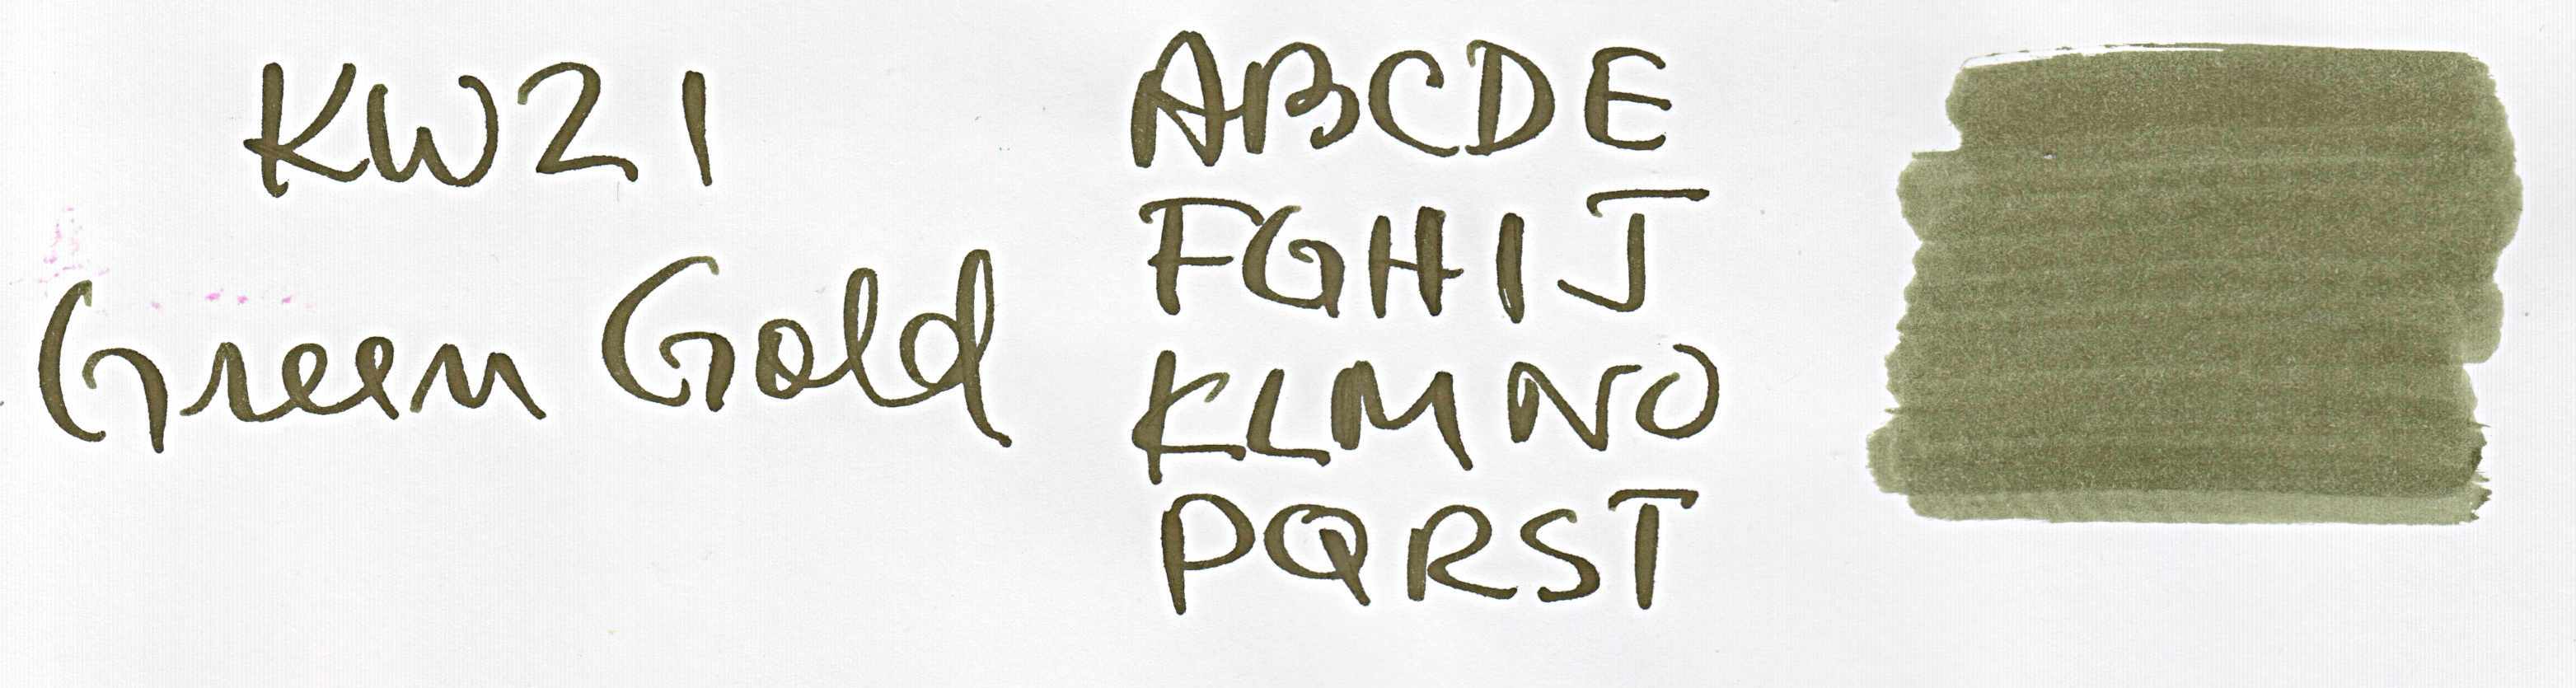 KWZI
Green Gold
ABCDE
FGHIJ
KLMNO
PQRST